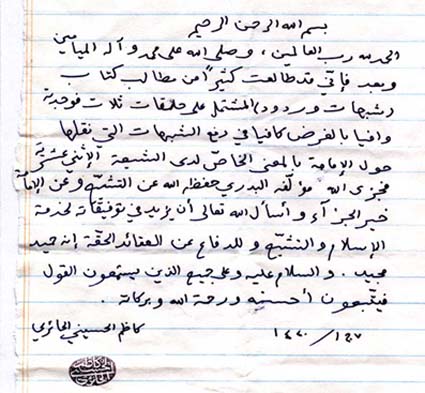 بسم الله الرحمن الرحيم
الحمد لله رب العالمين، وصلى الله على محمد وآله الميامين
وبعد فإني قد طالعت كثيراً من مطالب كتاب
(شبهات وردود) المشتمل على حلقات ثلاث فوجدته
وافيا بالغرض كافيا في دفع الشبهات التي نقلها
حول الإمامة بالمعنى الخاص لدى الشيعة الإثني عشرية
فجزى الله مؤلفه البدري حفظه الله عن التشيع وعن الإمامة
خير الجزاء وأسأل الله تعالى أن يزيد في توفيقاته لخدمة
الإسلام والتشيع وللدفاع عن العقائد الحقة إنه حميد
مجيد. والسلام عليه وعلى جميع الذين يستمعون القول
فيتبعون أحسنه ورحمة الله وبركاته.
كاظم الحسيني الحائري
١٤٢٠/ ١٤٧